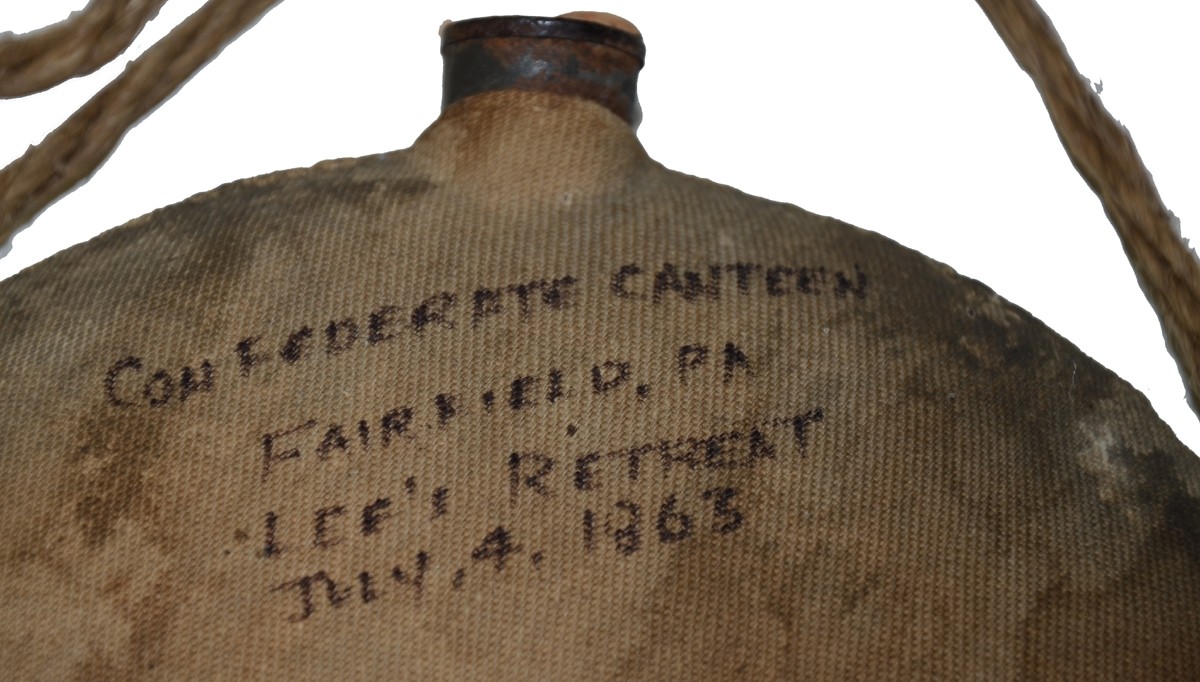 CONFEDERATE CANTEEN
FAIRFIELD, PA
LEE'S RETREAT
JULY, 4, 1863